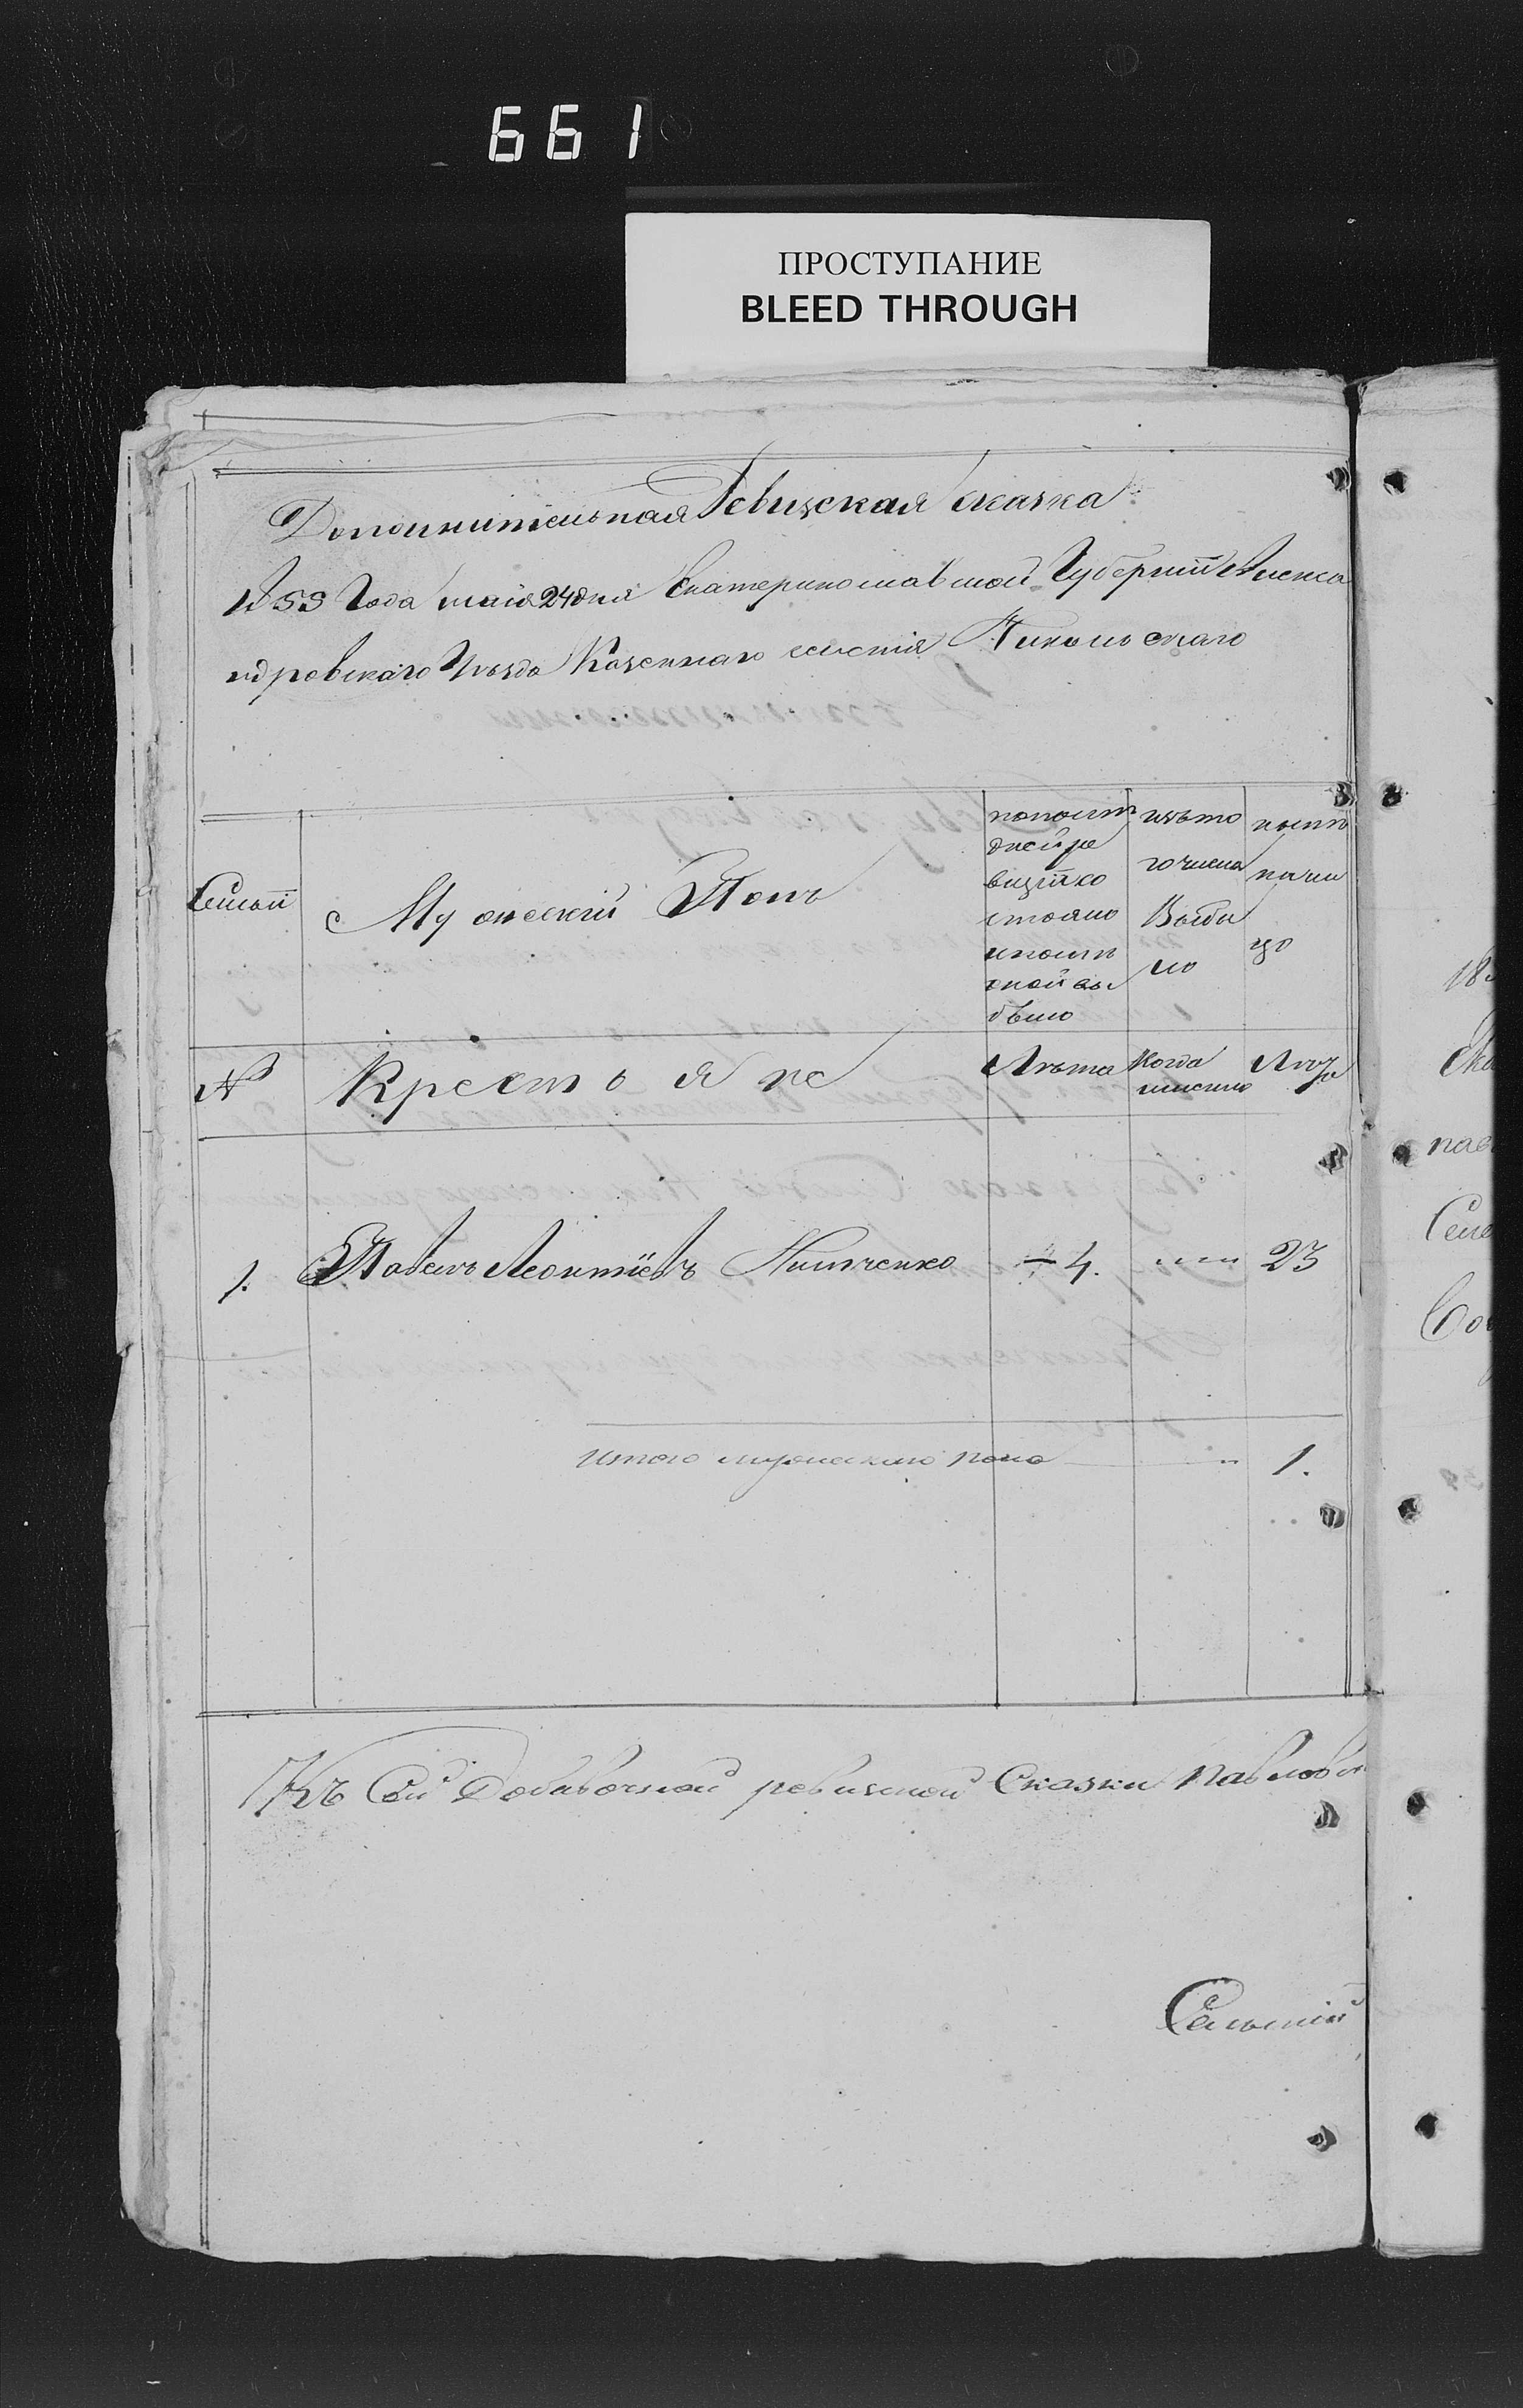 661
ПРОСТУПАНИЕ
BLEED THROUGH
Дополнительная Ревизская сказка
1859 Года маія 24 дня Екатеринославской Губерніи Алекса
ндровскаго Уѣзда Казеннаго селенія Никольскаго
Семьи
Мужескій Полъ
попослѣ
дней ре
визіи со
стояло
ипослѣ
оной вы
было
изъто
го числа
Выбы
ло
нынѣ
нали
цо
№
Крестьяне
Лѣта
Когда
именно
Лѣта
1.
Павелъ Леонтіевъ Нимченко
4.
23
Итого мужескаго пола
1.
Къ Сей Добавочной ревизской Сказки Павлов
Сельскій
18
Ека
пав
Селе